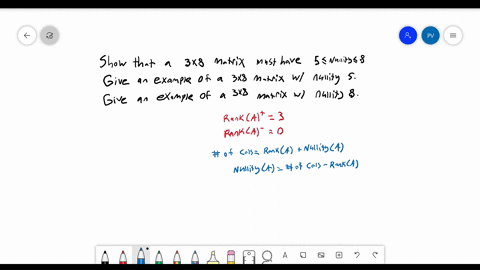 Show that a 3x8 matrix must have 5 ≤ Nullity ≤ 8
Give an example of a 3x8 matrix w/ nullity 5.
Give an example of a 3x8 matrix w/ nullity 8.
Rank(A)⁺ = 3
Rank(A)⁻ = 0
# of Cols = Rank(A) + Nullity(A)
Nullity(A) = # of Cols - Rank(A)
PV
A